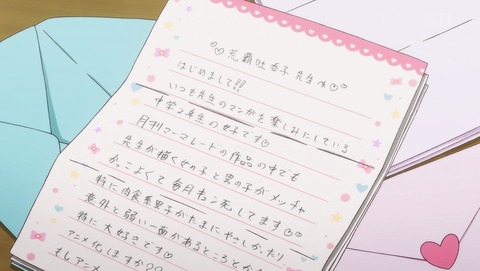 荒覇吐呑子 先生へ
はじめまして!!
いつも先生のマンガを楽しみにしている
中学2年生の女子です
月刊コーマレートの作品の中でも
先生が描く女の子と男の子がメッチャ
かっこよくて毎月キュン死してます
特に肉食系男子がたまにやさしかったり、
意外と弱い一面があるところとか
特に大好きです
アニメ化しますか??
もしアニメ